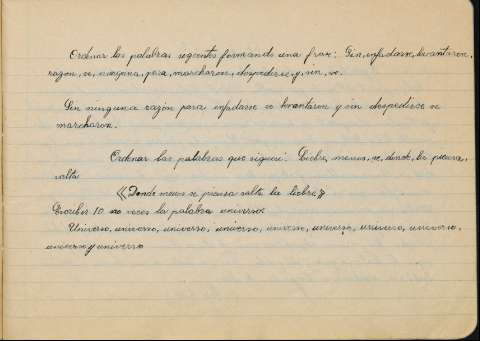 Ordenar las palabras siguientes formando una frase: Sin, enfadarse, levantaron,
razon, se, ninguna, para, marcharon, despedirse, y, sin, se.
Sin ninguna razón para enfadarse se levantaron y sin despedirse se
marcharon.
Ordenar las palabras que siguen: Liebre, menos, se, donde, la piensa,
salta
《Donde menos se piensa salta la liebre》
Escribir 10 veces la palabra universo:
Universo, universo, universo, universo, universo, universo, universo, universo,
universo y universo